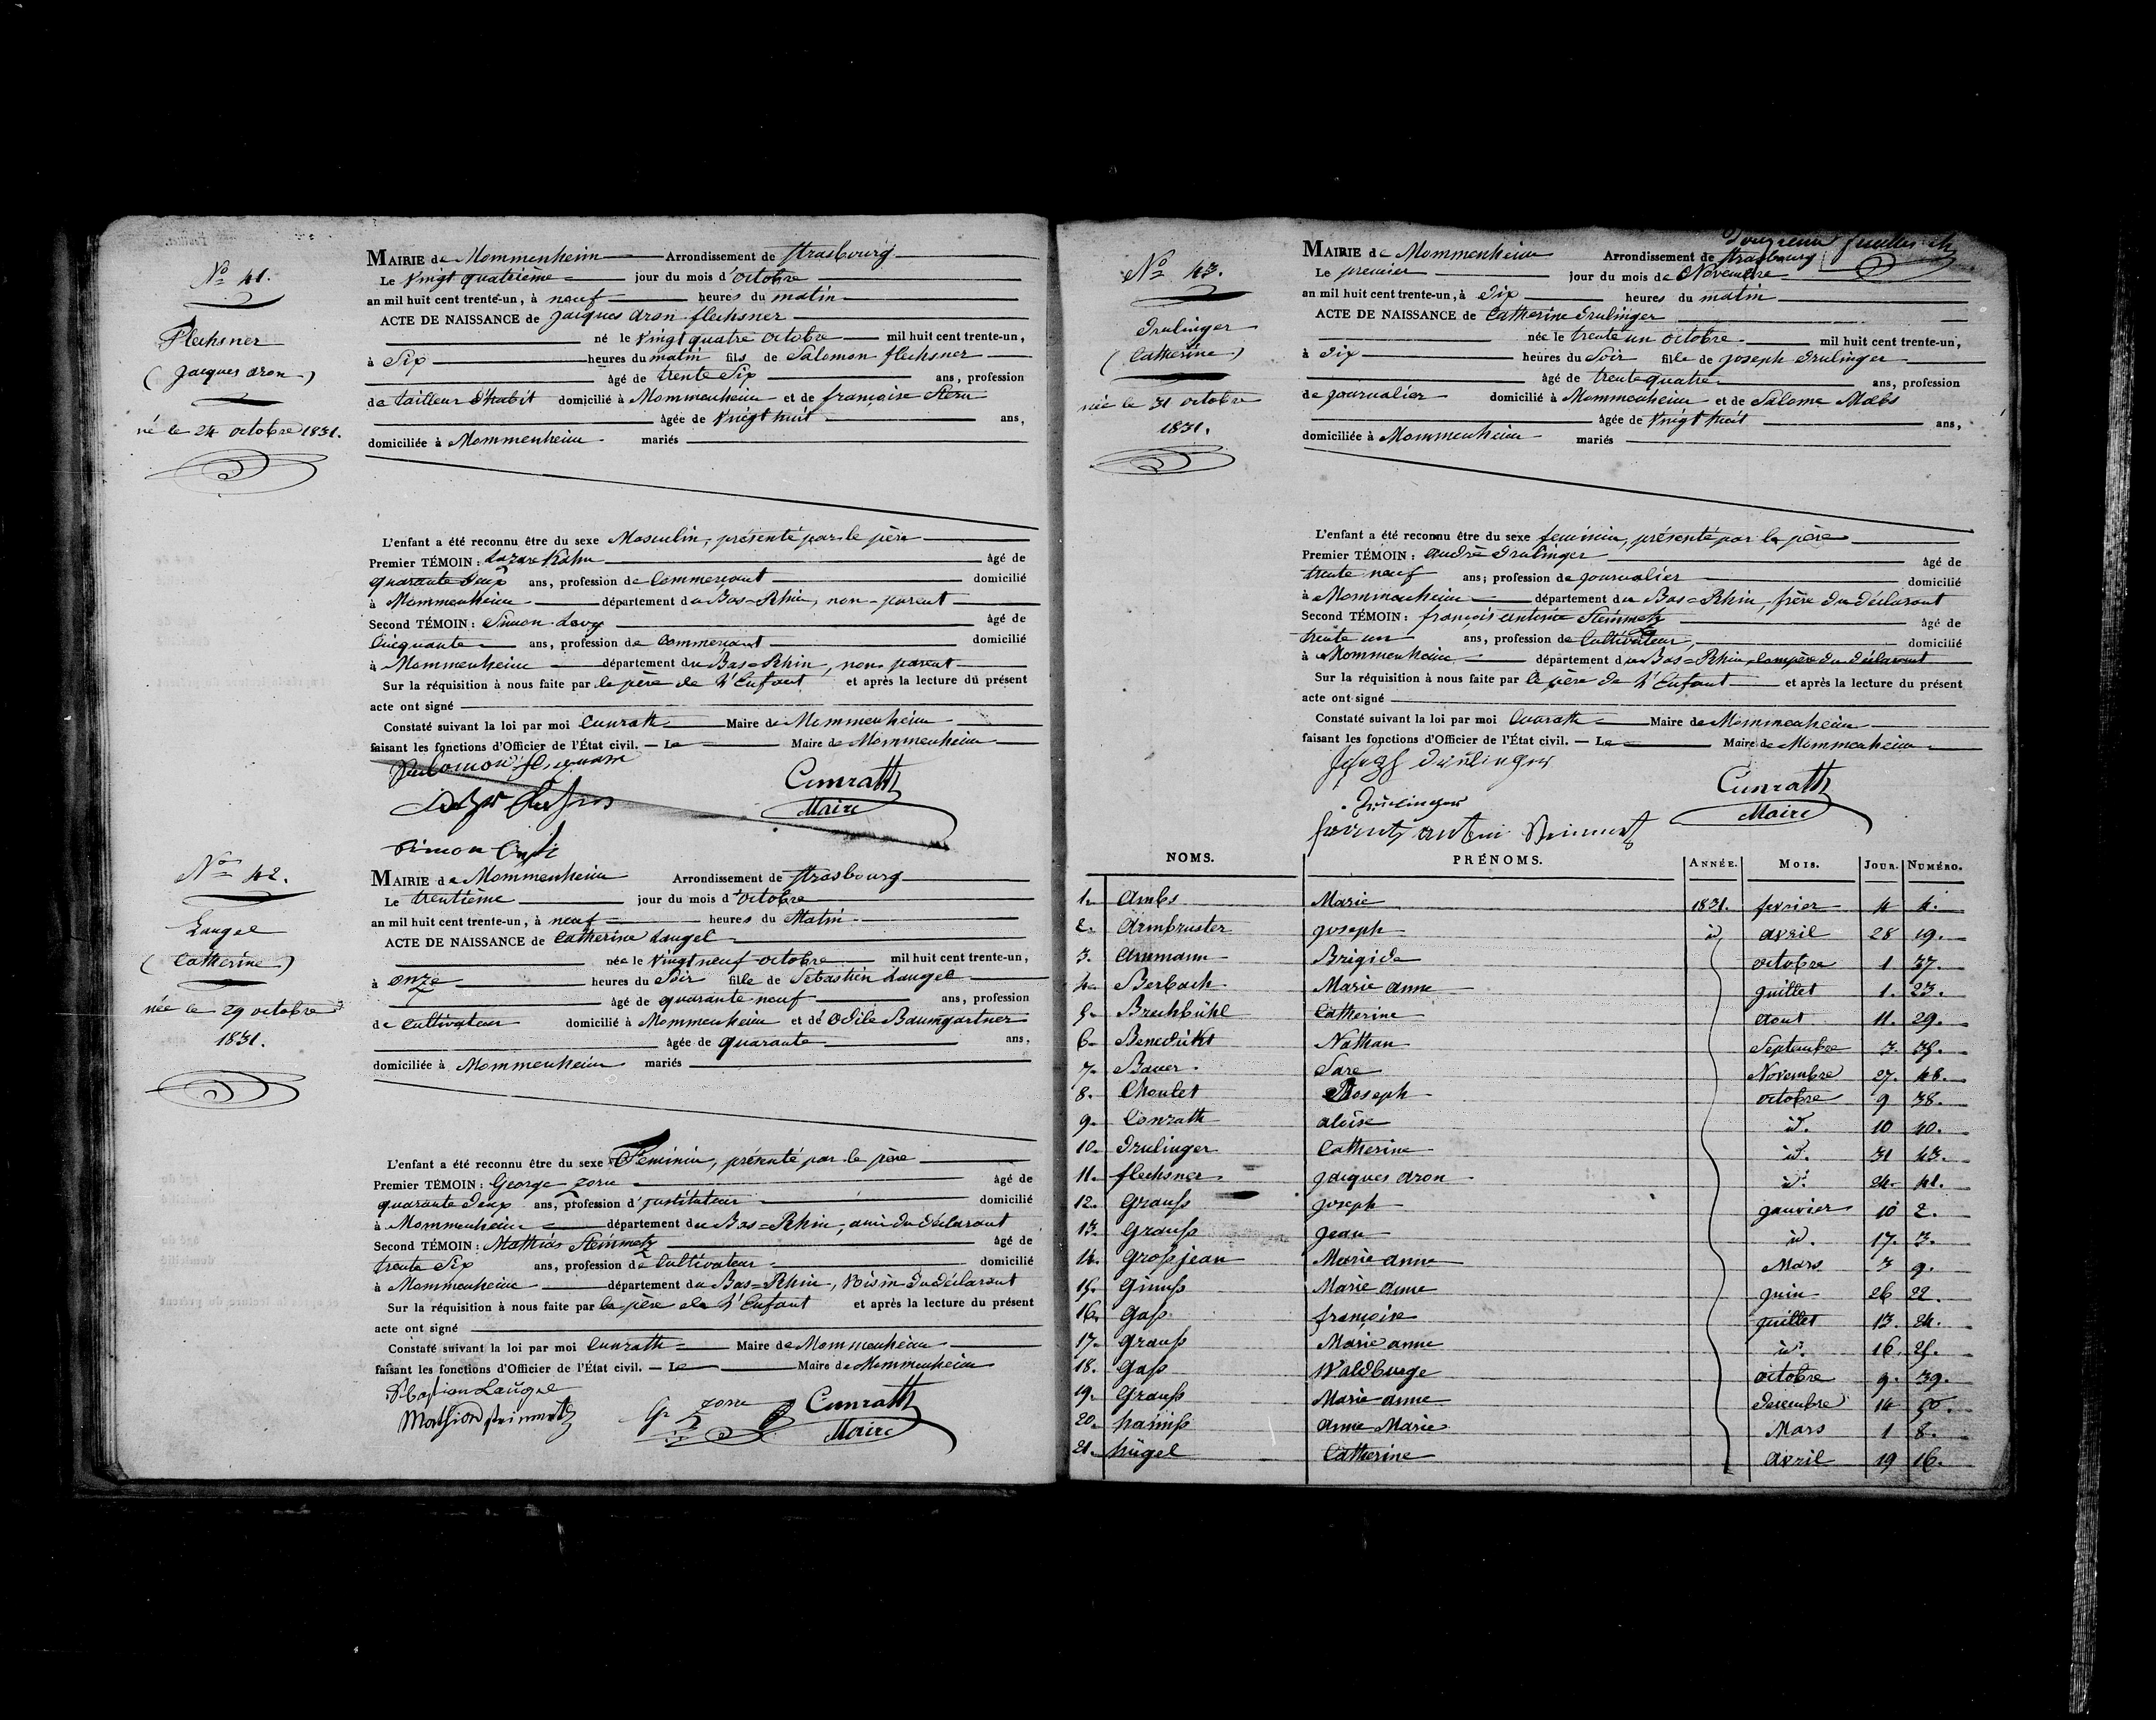 No 41.
Flechsner
(Jacques aron)
né le 24 octobre 1831.
MAIRIE de Mommenheim Arrondissement de Strasbourg
Le Vingt quatrième jour du mois d'octobre
an mil huit cent trente-un, à neuf heures du matin
ACTE DE NAISSANCE de Jacques aron flechsner
né le Vingt quatre octobre mil huit cent trente-un,
à Six heures du matin fils de Salomon flechsner
âgé de trente Six ans, profession
de tailleur d'habit domicilié à Mommenheim et de françoise Stern
âgée de Vingt huit ans,
domiciliée à Mommenheim mariés
L'enfant a été reconnu être du sexe Masculin, présenté par le père
Premier TÉMOIN: Lazare Kahn âgé de
quarante deux ans, profession de Commercant domicilié
à Mommenheim département du Bas=Rhin, non-parent
Second TÉMOIN: Simon Levy âgé de
Cinquante ans, profession de Commercant domicilié
à Mommenheim département du Bas=Rhin, non parent
Sur la réquisition à nous faite par le père de l'Enfant et après la lecture du présent
acte ont signé
Constaté suivant la loi par moi Cunrath Maire de Mommenheim
faisant les fonctions d'Officier de l'État civil. — Le Maire de Mommenheim
Cunrath
Maire
No 42.
Laugel
(Catherine)
née le 29 octobre
1831.
MAIRIE de Mommenheim Arrondissement de Strasbourg
Le trentième jour du mois d'octobre
an mil huit cent trente-un, à neuf heures du Matin
ACTE DE NAISSANCE de Catherine Laugel
née le Vingt neuf octobre mil huit cent trente-un,
à onze heures du Soir fille de Sebastien Laugel
âgé de quarante neuf ans, profession
de Cultivateur domicilié à Mommenheim et de Odile Baumgartner
âgée de quarante ans,
domiciliée à Mommenheim mariés
L'enfant a été reconnu être du sexe Feminin, présenté par le père
Premier TÉMOIN: George Zorn âgé de
quarante deux ans, profession d'justituteur domicilié
à Mommenheim département du Bas=Rhin, ami du déclarant
Second TÉMOIN: Mathias Steinmetz âgé de
trente Six ans, profession de Cultivateur domicilié
à Mommenheim département du Bas=Rhin, Voisin du déclarant
Sur la réquisition à nous faite par le père de l'Enfant et après la lecture du présent
acte ont signé
Constaté suivant la loi par moi Cunrath Maire de Mommenheim
faisant les fonctions d'Officier de l'État civil. — Le Maire de Mommenheim
Sebastian Laügel
Mathias Steinmetz Gr Zorn Cunrath
Maire
No 43.
Drulinger
(Catherine)
née le 31 octobre
1831.
MAIRIE de Mommenheim Arrondissement de Strasbourg
Le premier jour du mois de Novembre
an mil huit cent trente-un, à Dix heures du matin
ACTE DE NAISSANCE de Catherine Drulinger
née le trente un octobre mil huit cent trente-un,
à Dix heures du Soir fille de joseph Drulinger
âgé de trente quatre ans, profession
de journalier domicilié à Mommenheim et de Salome
âgée de Vingt huit ans,
domiciliée à Mommenheim mariés
L'enfant a été reconnu être du sexe feminin, présenté par le père
Premier TÉMOIN: André Drulinger âgé de
trente neuf ans; profession de journalier domicilié
à Mommenheim département du Bas=Rhin, frère du déclarant
Second TÉMOIN: françois antoine Steinmetz âgé de
trente un ans, profession de Cultivateur, domicilié
à Mommenheim département du Bas=Rhin, Compère du déclarant
Sur la réquisition à nous faite par le père de l'Enfant et après la lecture du présent
acte ont signé
Constaté suivant la loi par moi Cunrath Maire de Mommenheim
faisant les fonctions d'Officier de l'État civil. — Le Maire de Mommenheim
Joseph Drulinger
Drulinger
Cunrath
Maire
NOMS. PRÉNOMS. ANNÉE. MOIS. JOUR. NUMÉRO.
1. Ambs Marie 1831. fevrier 4 4.
2. Armbruster joseph id avril 28 19.
3. Ammann Brigide octobre 1 37.
4. Berbach Marie anne juillet 1. 23.
5. Brechbühl Catherine aout 11. 29.
6. Benedickt Nathan Septembre 3. 35.
7. Bauer Sare Novembre 27. 48.
8. Choulet Joseph octobre 9 38.
9. Conrath aloise id. 10 40.
10. Drulinger Catherine id. 31 43.
11. flechsner jacques aron id. 24. 41.
12. Grauß joseph janvier 10 2.
13. Grauß jean id. 17. 3.
14. Großjean Marie anne Mars 3 9.
15. Marie anne juin 26 22.
16. Gaß françoise juillet 13. 24.
17. Grauß Marie anne id. 16. 25.
18. Gaß Waldburge octobre 9. 39.
19. Grauß Marie anne decembre 14 50.
20. Anne Marie Mars 1 8.
21. hügel Catherine avril 19 16.